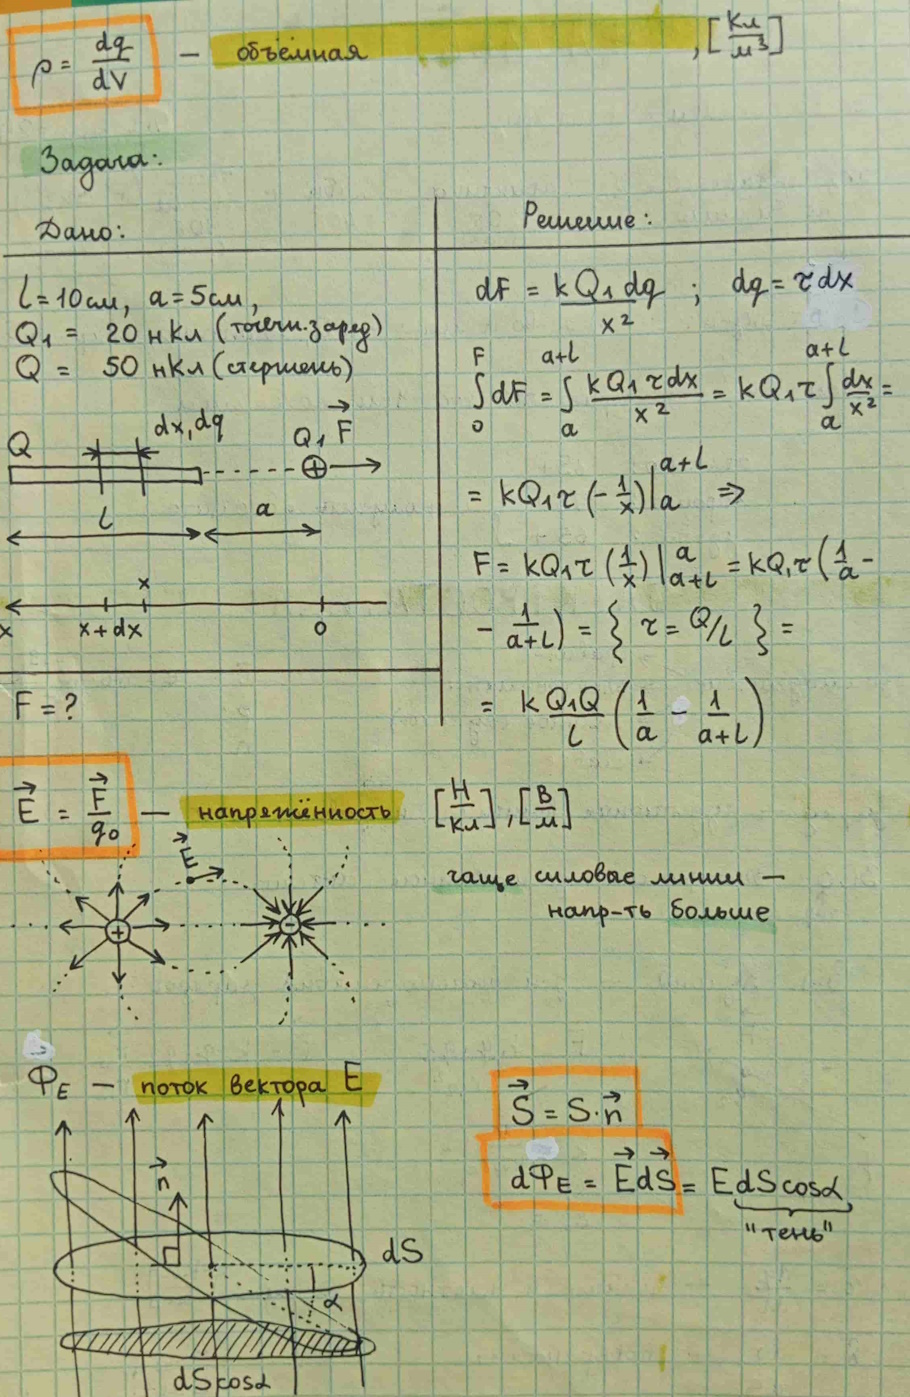 ρ = dq/dV — объёмная , [Кл/м³]
Задача:
Дано:
l = 10 см, a = 5 см,
Q₁ = 20 нКл (точечн. заряд)
Q = 50 нКл (стержень)
dx, dq
Q Q₁ F⃗
l a
x
x x + dx 0
F = ?
Решение:
dF = kQ₁dq/x² ; dq = τdx
∫₀^F dF = ∫ₐ^(a+l) kQ₁τdx/x² = kQ₁τ ∫ₐ^(a+l) dx/x² =
= kQ₁τ (−1/x)|ₐ^(a+l) ⇒
F = kQ₁τ (1/x)|_(a+l)^a = kQ₁τ (1/a −
− 1/(a+l)) = { τ = Q/l } =
= kQ₁Q/l (1/a − 1/(a+l))
E⃗ = F⃗/q₀ — напряжённость [Н/Кл], [В/м]
E⃗
+ −
чаще силовые линии —
напр-ть больше
Φ_E — поток вектора E
n⃗
dS
α
dScosα
S⃗ = S·n⃗
dΦ_E = E⃗dS⃗ = EdScosα
"тень"